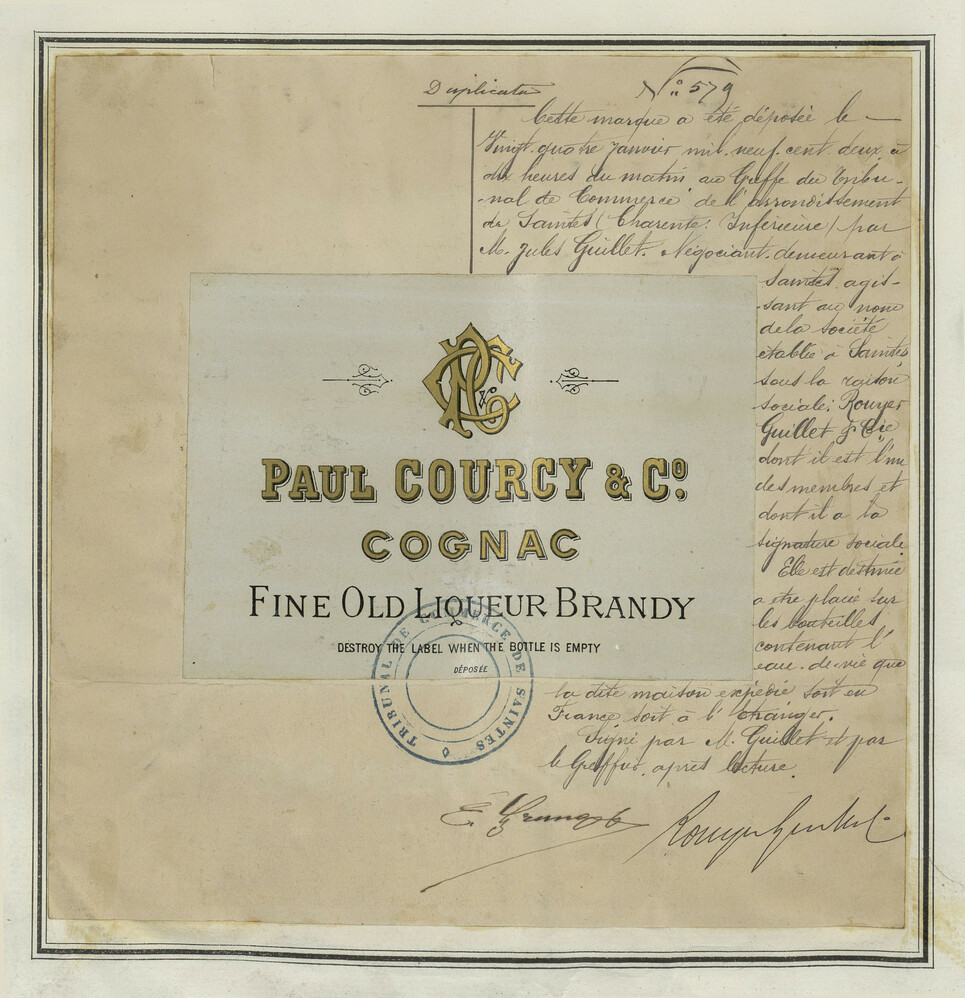 Duplicata
N° 579
Cette marque a été déposée le —
Vingt-quatre janvier mil-neuf-cent-deux à
dix heures du matin au Greffe du Tribu-
-nal de Commerce de l'arrondissement
de Saintes (Charente: Inférieure) par
M. Jules Guillet. Négociant. demeurant à
Saintes agis-
-sant au nom
de la société
établie à Saintes
sous la raison
sociale: Rouyer
Guillet & Cie
dont il est l'un
des membres et
dont il a la
signature sociale.
Elle est destinée
a être placée sur
les bouteilles
contenant l'
eau-de-vie que
la dite maison expédie soit en
France soit à l'étranger.
Signé par M. Guillet et par
le Greffier, après lecture.
PAUL COURCY & Cº.
COGNAC
FINE OLD LIQUEUR BRANDY
DESTROY THE LABEL WHEN THE BOTTLE IS EMPTY
DÉPOSÉE
TRIBUNAL DE COMMERCE DE SAINTES
Rouyer Guillet